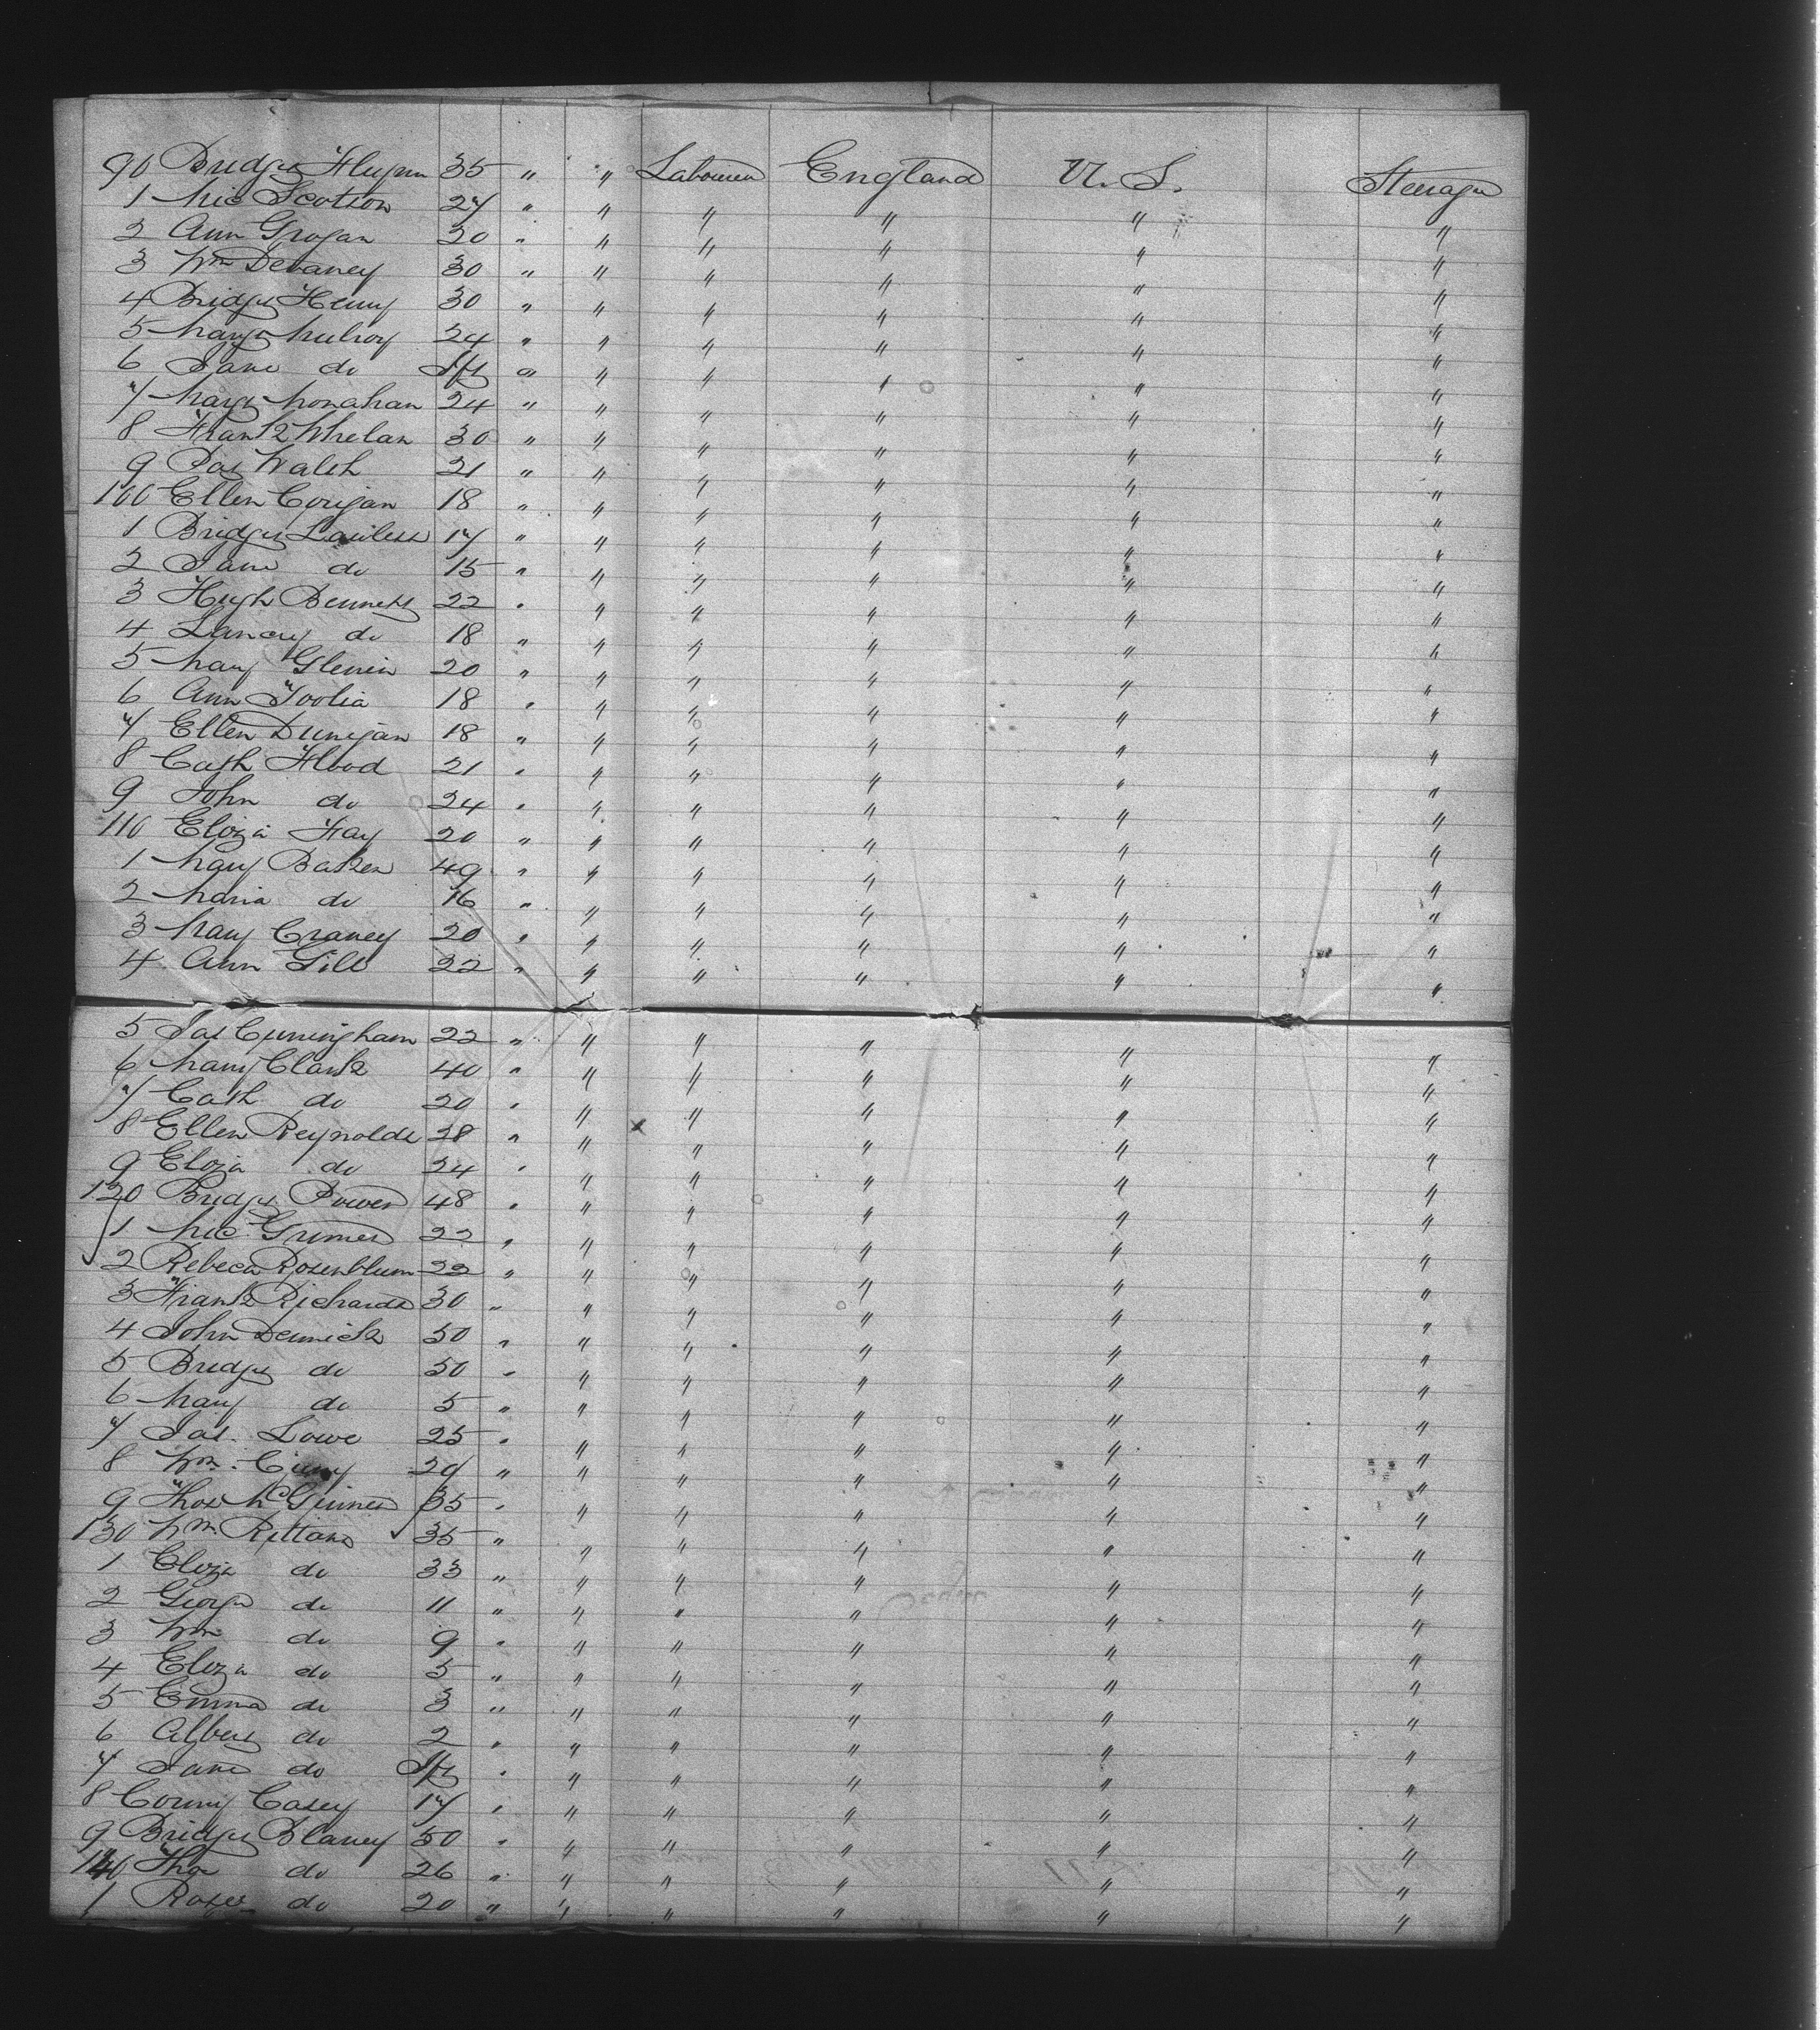 90 Bridgt Flynn 35 " " Labourer England U.S. Steerage
1 Mic Scotson 27 " " " " " "
2 Ann Grogan 20 " " " " " "
3 Wm Devaney 30 " " " " " "
4 Bridgt Henry 30 " " " " " "
5 Margt Mulroy 24 " " " " " "
6 Jane do Inft " " " " " "
7 Margt Monahan 24 " " " " " "
8 Frank Whelan 30 " " " " " "
9 Pat Walsh 21 " " " " " "
100 Ellen Corigan 18 " " " " " "
1 Bridgt Lawless 17 " " " " " "
2 Jane do 15 " " " " " "
3 Hugh Bennett 22 " " " " " "
4 do 18 " " " " " "
5 Mary 20 " " " " " "
6 Ann Toolia 18 " " " " " "
7 Ellen Dunigan 18 " " " " " "
8 Cath Flood 21 " " " " " "
9 John do 24 " " " " " "
110 Eliza Fay 20 " " " " " "
1 Mary Baker 49 " " " " " "
2 Maria do 16 " " " " " "
3 Mary Craney 20 " " " " " "
4 Ann Gill 22 " " " " " "
5 Jas Cunningham 22 " " " " " "
6 Mary Clark 40 " " " " " "
7 Cath do 20 " " " " " "
8 Ellen Reynolds 28 " " " " " "
9 Eliza do 24 " " " " " "
120 Bridgt Power 48 " " " " " "
1 Mic Grimes 22 " " " " " "
2 Rebeca Rosenblum 22 " " " " " "
3 Frank Richards 30 " " " " " "
4 John Dernick 50 " " " " " "
5 Bridgt do 50 " " " " " "
6 Mary do 5 " " " " " "
7 Jas. Lowe 25 " " " " " "
8 Wm. 29 " " " " " "
9 Thos McGuiness 35 " " " " " "
130 Wm. 35 " " " " " "
1 Eliza do 33 " " " " " "
2 George do 11 " " " " " "
3 Wm do 9 " " " " " "
4 Eliza do 5 " " " " " "
5 Emma do 3 " " " " " "
6 Albert do 2 " " " " " "
7 Jane do Inft " " " " " "
8 Casey 17 " " " " " "
9 Bridgt Blaney 50 " " " " " "
140 Thos do 26 " " " " " "
1 Roses do 20 " " " " " "